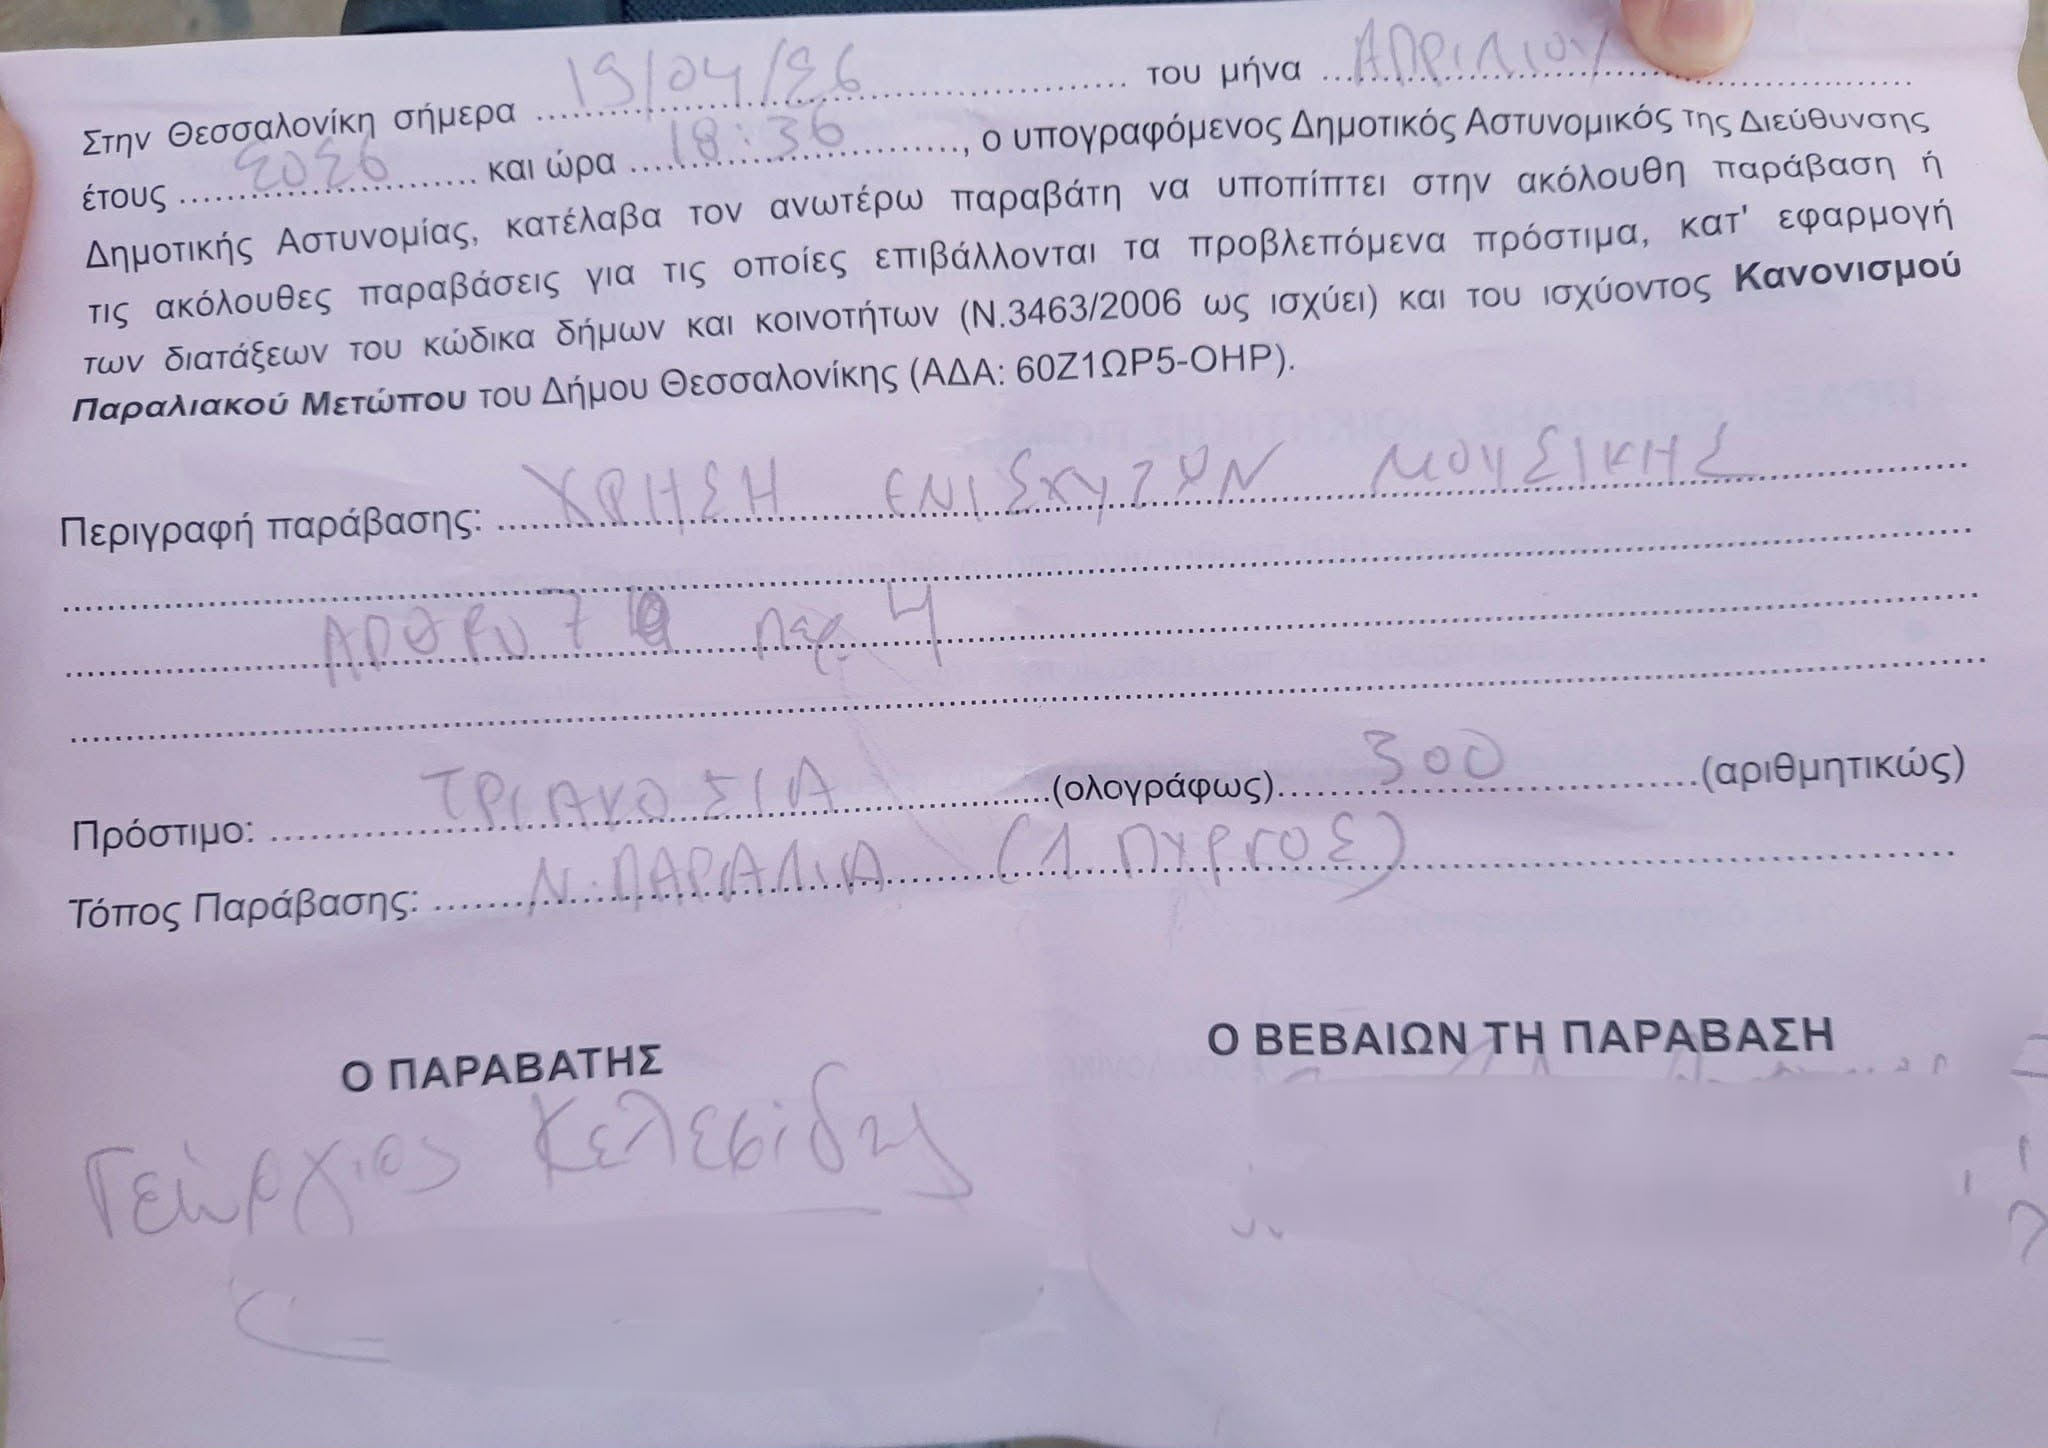 Στην Θεσσαλονίκη σήμερα 19/04/26 του μήνα ΑΠΡΙΛΙΟΥ
έτους 2026 και ώρα 18:36, ο υπογραφόμενος Δημοτικός Αστυνομικός της Διεύθυνσης
Δημοτικής Αστυνομίας, κατέλαβα τον ανωτέρω παραβάτη να υποπίπτει στην ακόλουθη παράβαση ή
τις ακόλουθες παραβάσεις για τις οποίες επιβάλλονται τα προβλεπόμενα πρόστιμα, κατ' εφαρμογή
των διατάξεων του κώδικα δήμων και κοινοτήτων (Ν.3463/2006 ως ισχύει) και του ισχύοντος Κανονισμού
Παραλιακού Μετώπου του Δήμου Θεσσαλονίκης (ΑΔΑ: 60Ζ1ΩΡ5-ΟΗΡ).
Περιγραφή παράβασης: ΧΡΗΣΗ ΕΝΙΣΧΥΤΩΝ ΜΟΥΣΙΚΗΣ
ΑΡΘΡΟ 7 περ. 4
Πρόστιμο: ΤΡΙΑΚΟΣΙΑ (ολογράφως) 300 (αριθμητικώς)
Τόπος Παράβασης: Ν. ΠΑΡΑΛΙΑ (Λ. ΠΥΡΓΟΣ)
Ο ΠΑΡΑΒΑΤΗΣ Ο ΒΕΒΑΙΩΝ ΤΗ ΠΑΡΑΒΑΣΗ
Γεώργιος Κελεσίδης